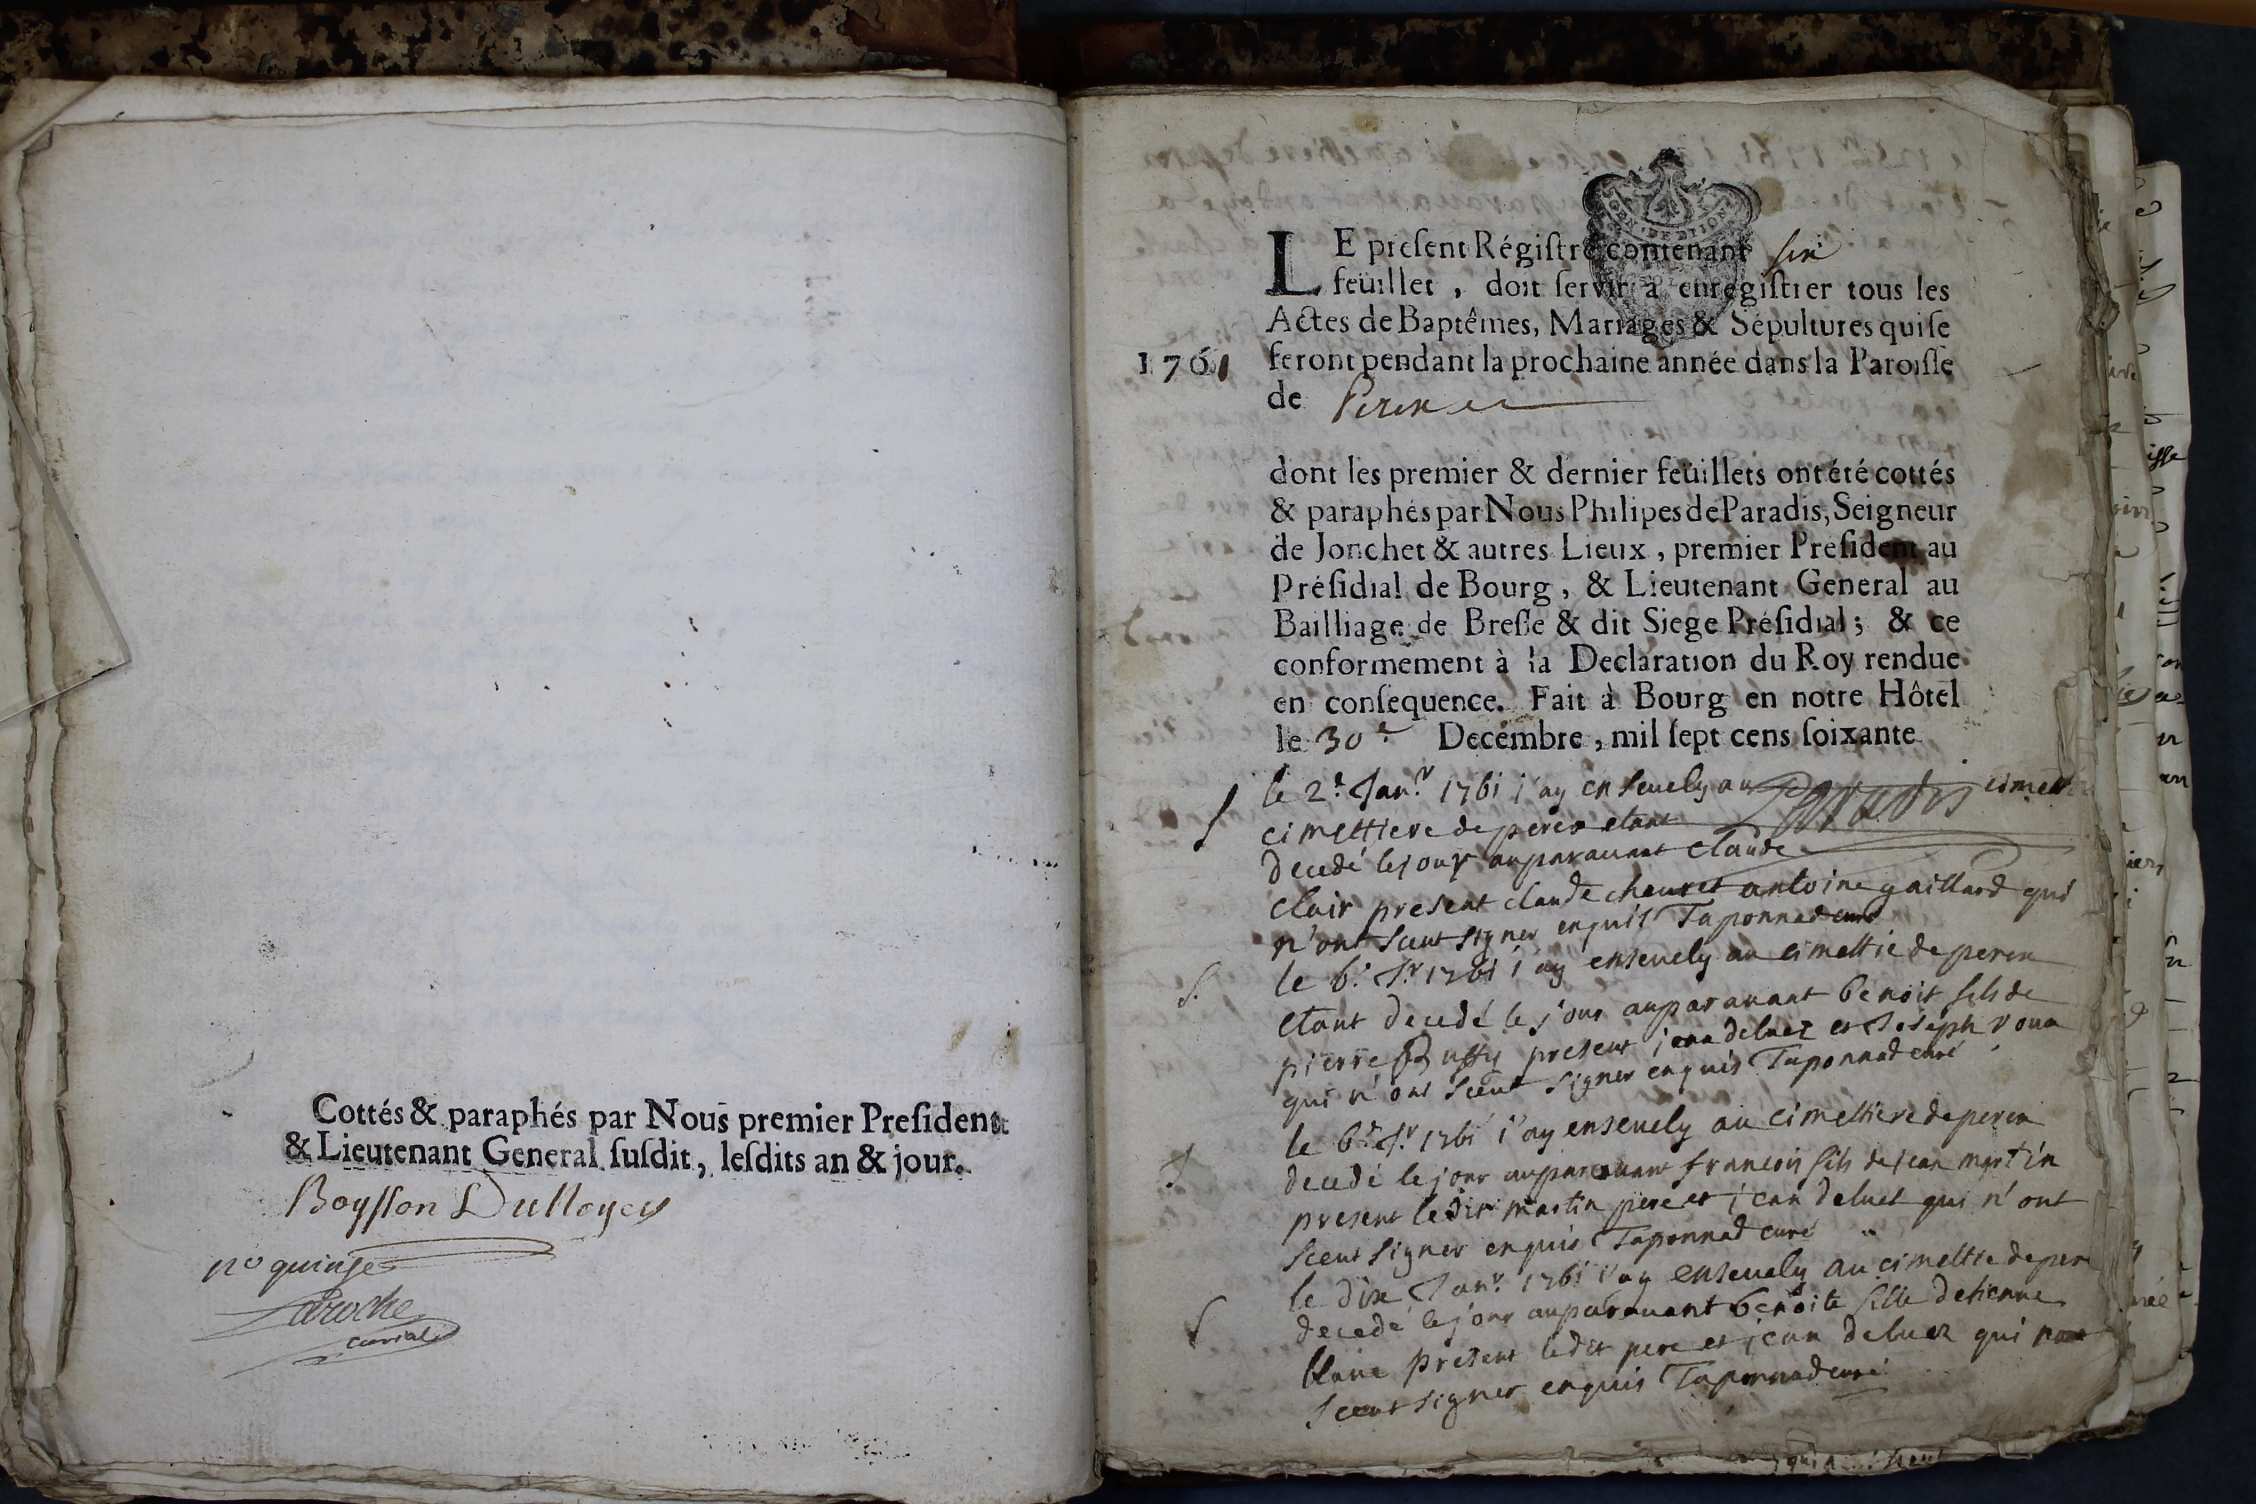 Cottés & paraphés par Nous premier President
& Lieutenant General susdit, lesdits an & jour.
Boysson Dulloyer
no quinze
Laroche
curial
GEN · DE DIJON
LE present Régistre contenant six
feüillet, doit servir à enregistrer tous les
Actes de Baptêmes, Mariages & Sépultures qui se
1761 feront pendant la prochaine année dans la Paroisse
de Perex
dont les premier & dernier feüillets ont été cottés
& paraphés par Nous Philipes de Paradis, Seigneur
de Jonchet & autres Lieux, premier President au
Présidial de Bourg, & Lieutenant General au
Bailliage de Bresse & dit Siege Présidial; & ce
conformement à la Declaration du Roy rendue
en consequence. Fait à Bourg en notre Hôtel
le 30e Decembre, mil sept cens soixante
Paradis
le 2e Janr 1761 j'ay ensevely au
S cimettiere de perex etant
decedé le jour auparavant claude
clair present claude chauvet antoine gaillard qui
n'ont sceut signer enquis Taponnad curé
S. le 6e Jr 1761 j'ay ensevely au cimettie de perex
etant decedé le jour auparavant benoit fils de
pierre Buffy present jean deluez et Joseph
qui n'ont sceut signer enquis Taponnad curé
S le 6e Jr 1761 j'ay ensevely au cimettiere de perex
decedé le jour auparavant francois fils de jean martin
present ledit martin pere et jean deluet qui n'ont
sceut signer enquis Taponnad curé
S le dixe Janr 1761 j'ay ensevely au cimettie de perex
decedé le jour auparavant benoite fille detienne
blanc present ledit pere et jean deluez qui nont
sceut signer enquis Taponnad curé